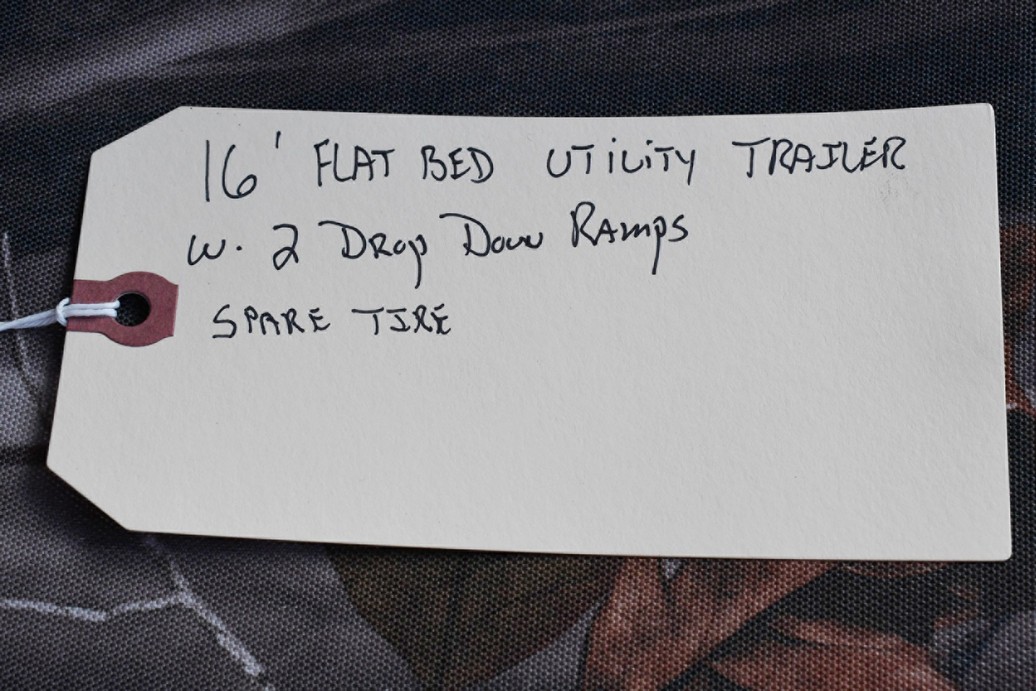 16' FLAT BED UTILITY TRAILER
W. 2 Drop Down RAmps
SPARE TIRE